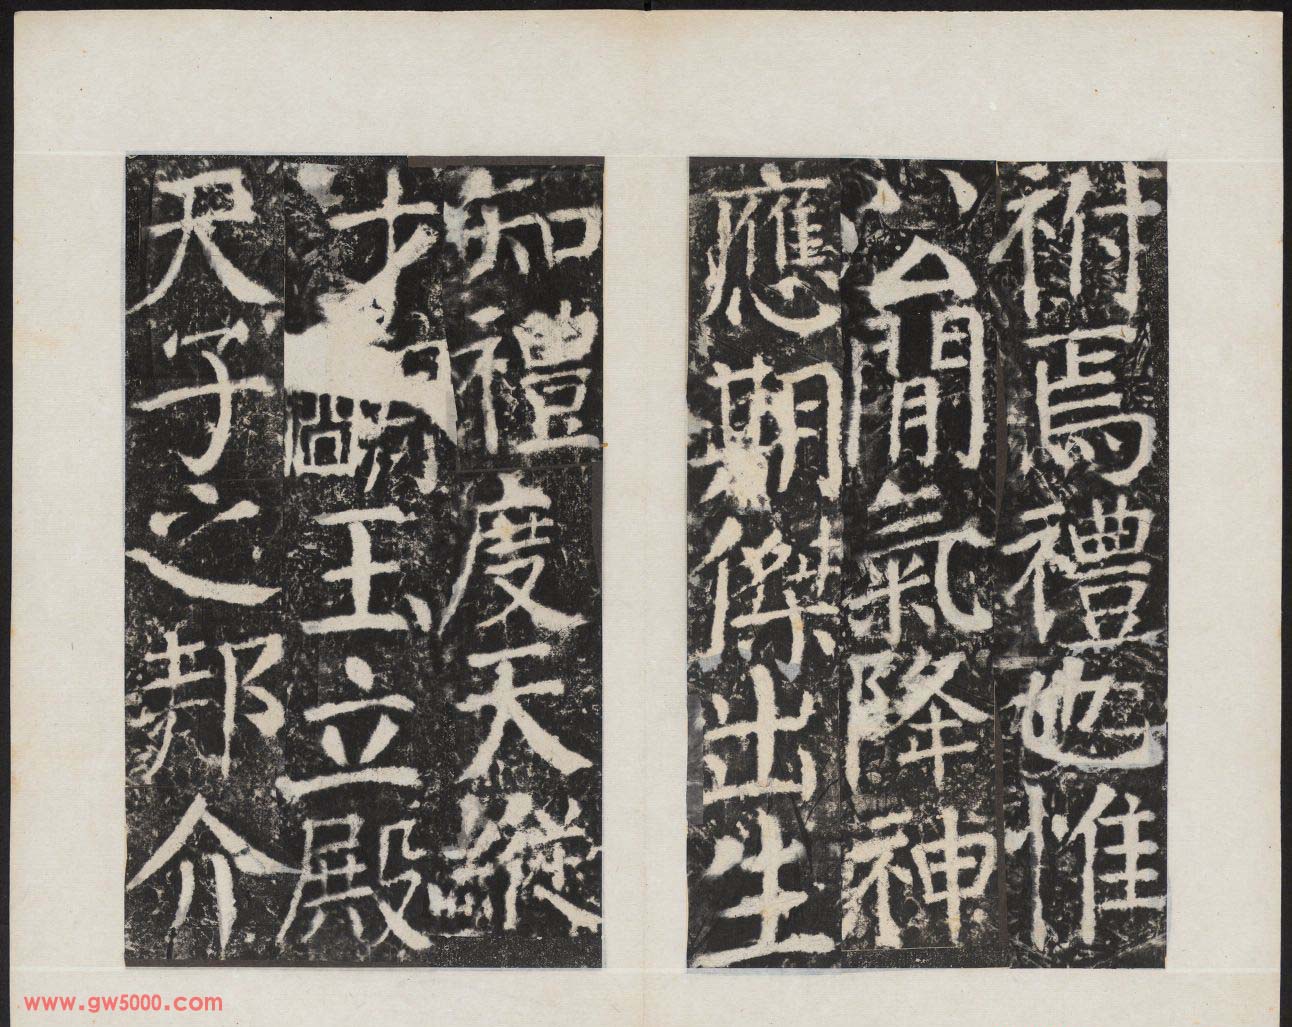 祔焉禮也惟
公閒氣降神
應期傑出生
知禮度天縱
才玉立殿
天子之邦介
www.gw5000.com